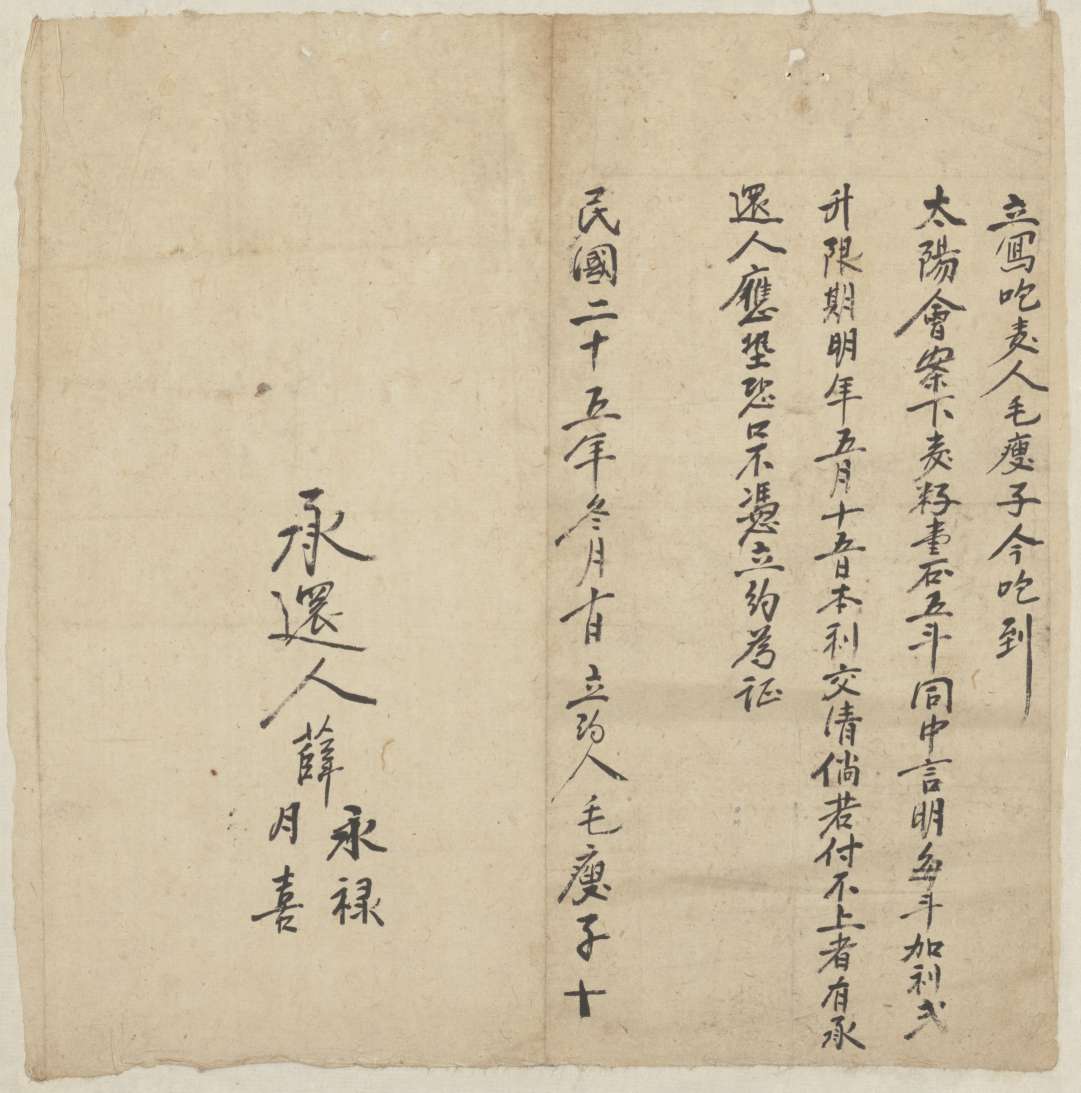 立寫吃麦人毛瘦子今吃到
太陽會案下麦籽壹石五斗同中言明每斗加利弍
升限期明年五月十五日本利交清倘若付不上者有承
還人應墊恐口不憑立約為証
民國二十五年冬月十日立約人毛瘦子十
承還人薛永禄
月喜